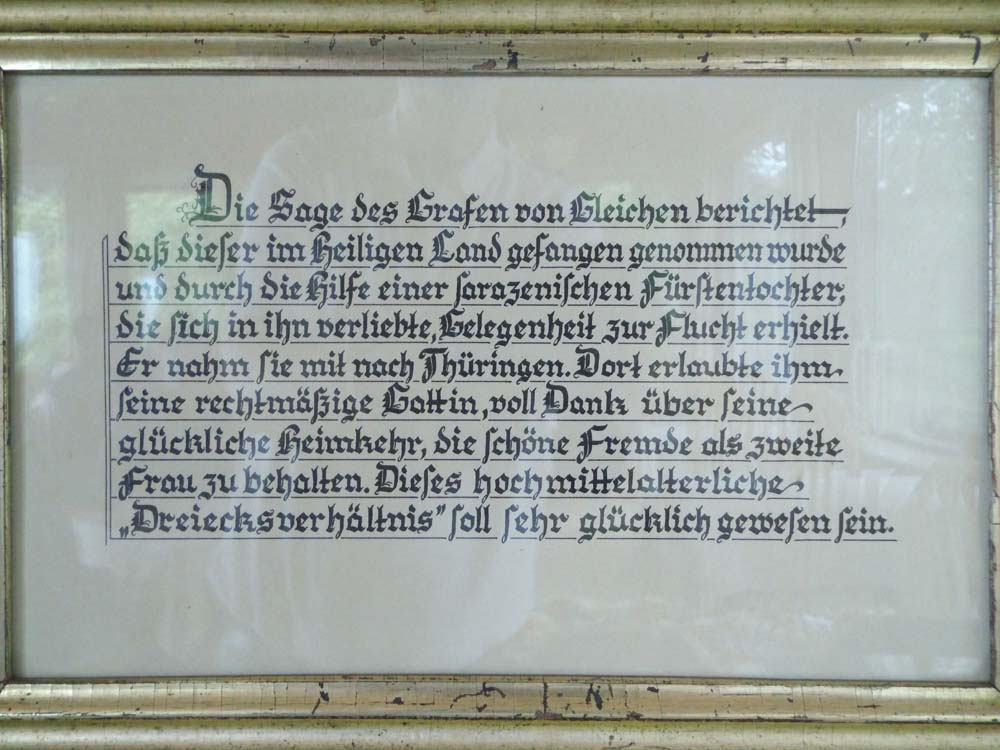 Die Sage des Grafen von Gleichen berichtet,
daß dieser im Heiligen Land gefangen genommen wurde
und durch die Hilfe einer sarazenischen Fürstentochter,
die sich in ihn verliebte, Gelegenheit zur Flucht erhielt.
Er nahm sie mit nach Thüringen. Dort erlaubte ihm
seine rechtmäßige Gattin, voll Dank über seine
glückliche Heimkehr, die schöne Fremde als zweite
Frau zu behalten. Dieses hochmittelalterliche
„Dreiecksverhältnis” soll sehr glücklich gewesen sein.